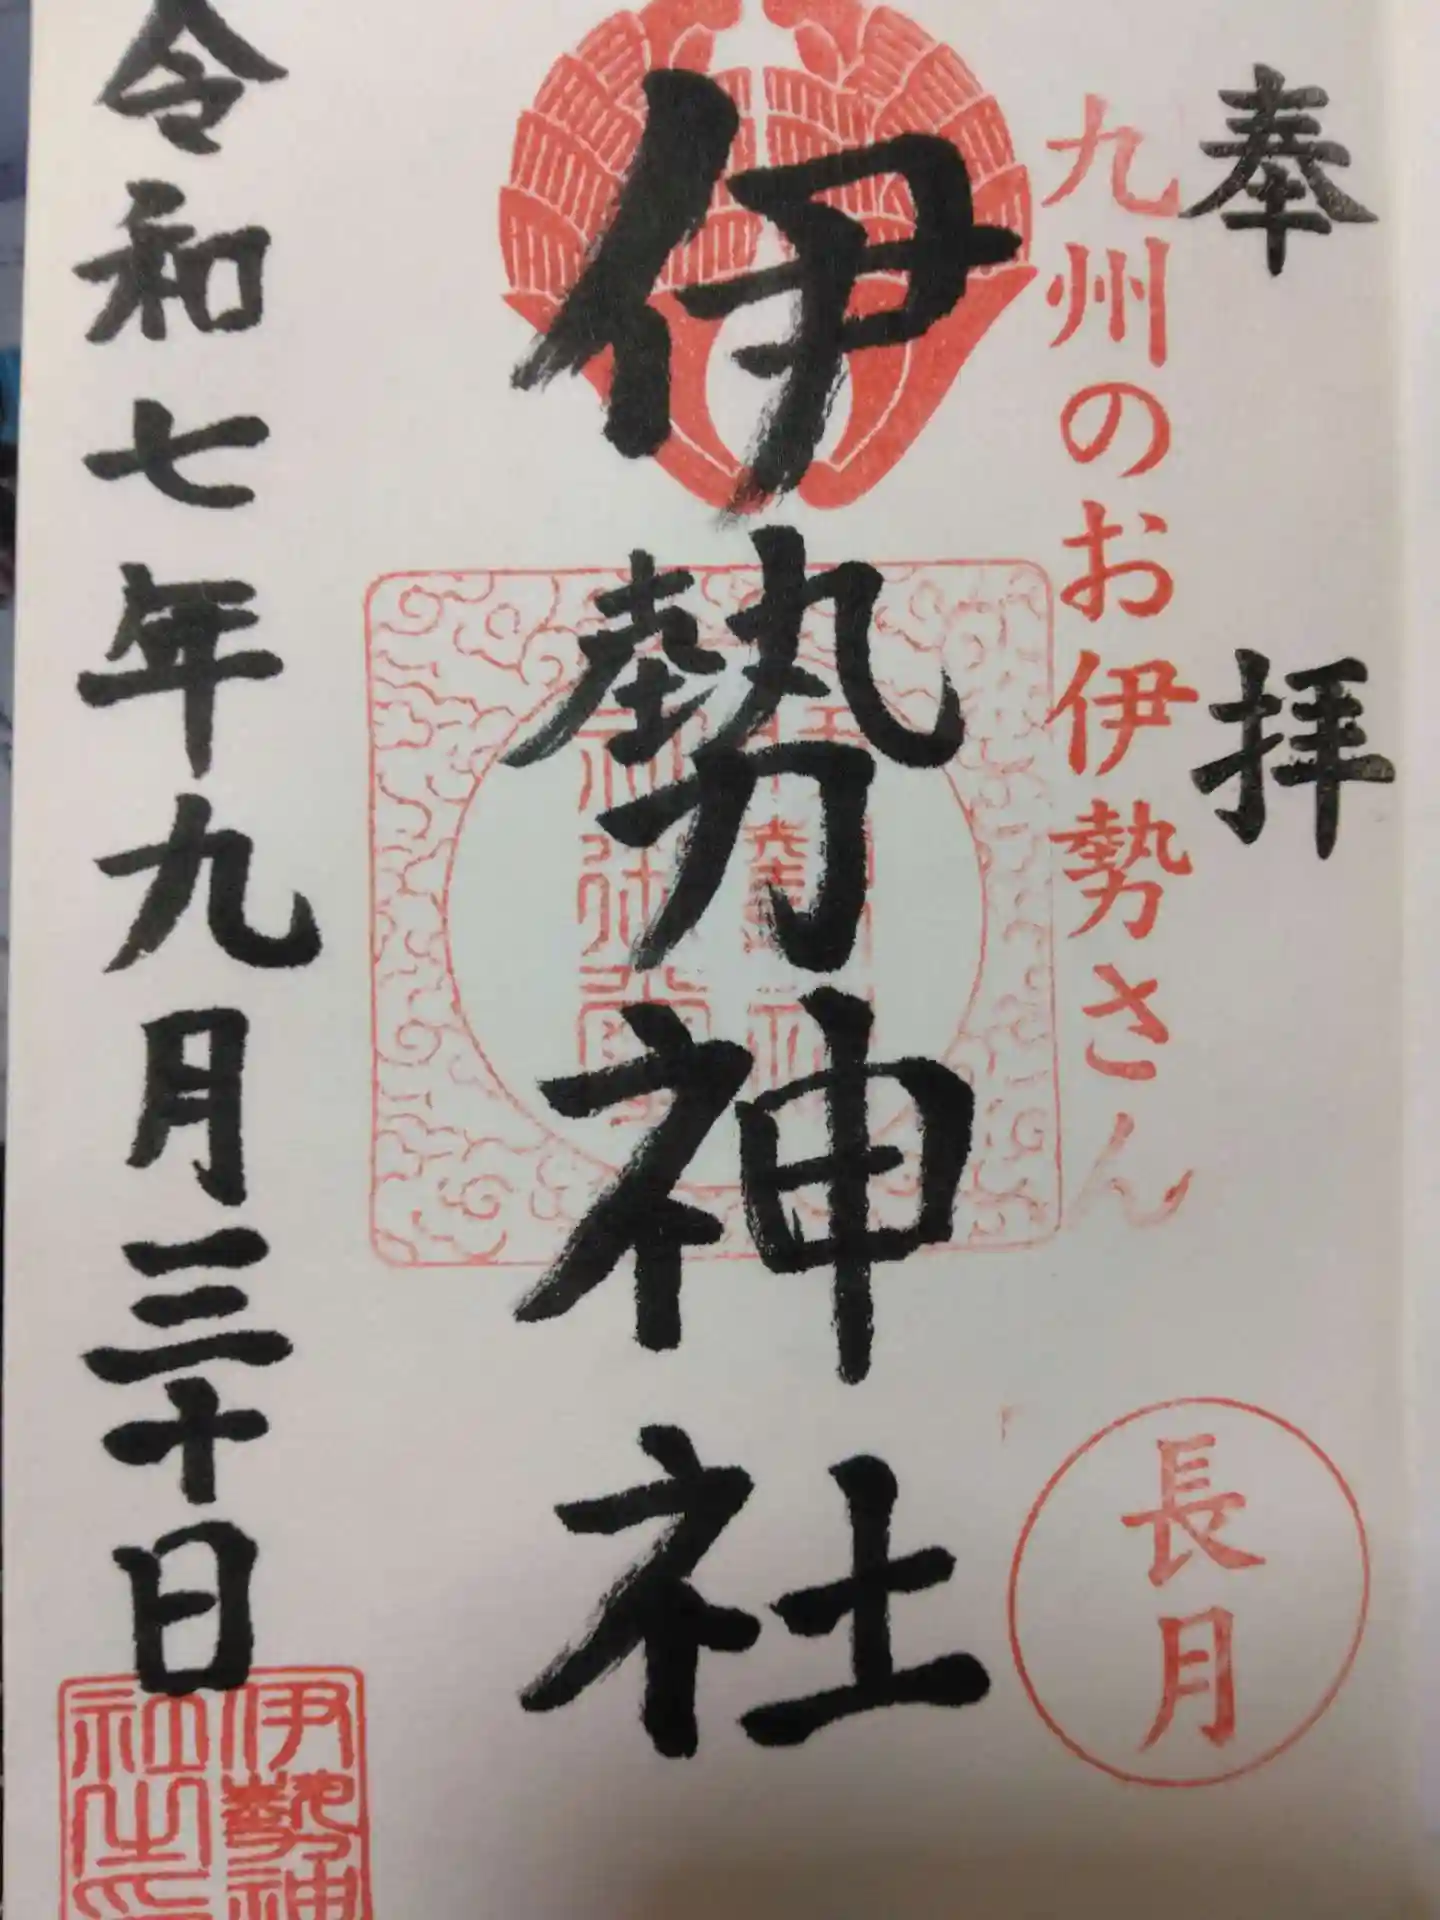 奉拝
九州のお伊勢さん
長月
伊勢神社
令和七年九月三十日
伊勢神
社之